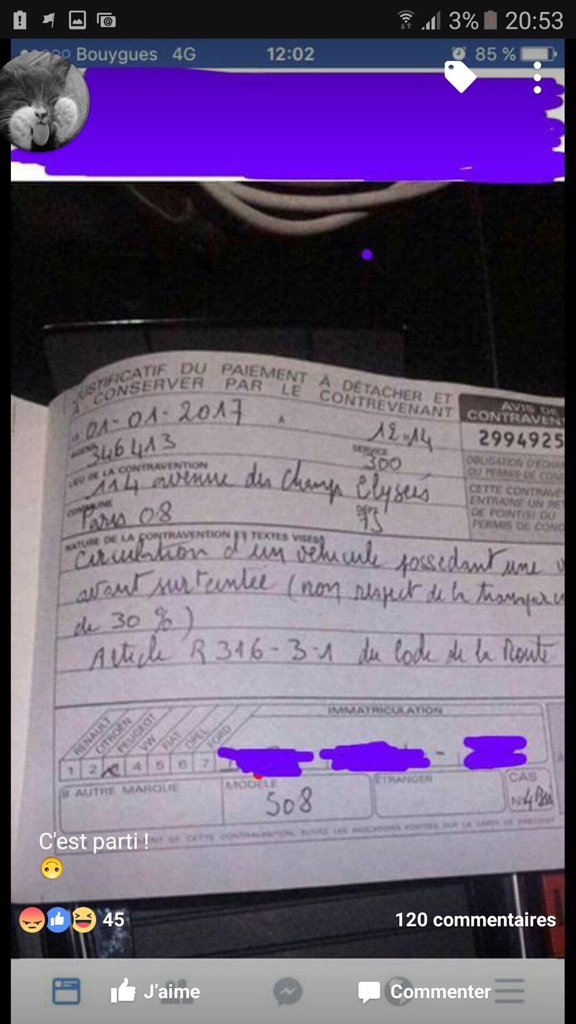 3% 20:53
Bouygues 4G 12:02 85 %
JUSTIFICATIF DU PAIEMENT À DÉTACHER ET
À CONSERVER PAR LE CONTREVENANT
AVIS DE
CONTRAVEN
01-01-2017 A 12 14
2994925
346413
SERVICE
300
OBLIGATION D'ÉCHA
DU PERMIS DE COND
LIEU DE LA CONTRAVENTION
114 avenue des Champs Elysées
CETTE CONTRAVE
ENTRAINE UN RE
DE POINT(S) DU
PERMIS DE COND
COMMUNE
Paris 08
75
NATURE DE LA CONTRAVENTION ET TEXTES VISÉS
Circulation d'un véhicule possedant une v
avant surteintée (non respect de la transpare
de 30 %)
Article R 316-3-1 du Code de la Route
IMMATRICULATION
RENAULT
CITROËN
PEUGEOT
VW
FIAT
OPEL
FORD
1 2 4 5 6 7
8 AUTRE MARQUE
MODÈLE
508
ÉTRANGER
CAS
N4
C'est parti !
DE CETTE CONTRAVENTION, SUIVEZ LES INDICATIONS PORTÉES SUR LA CARTE DE PAIEMENT
45 120 commentaires
J'aime Commenter